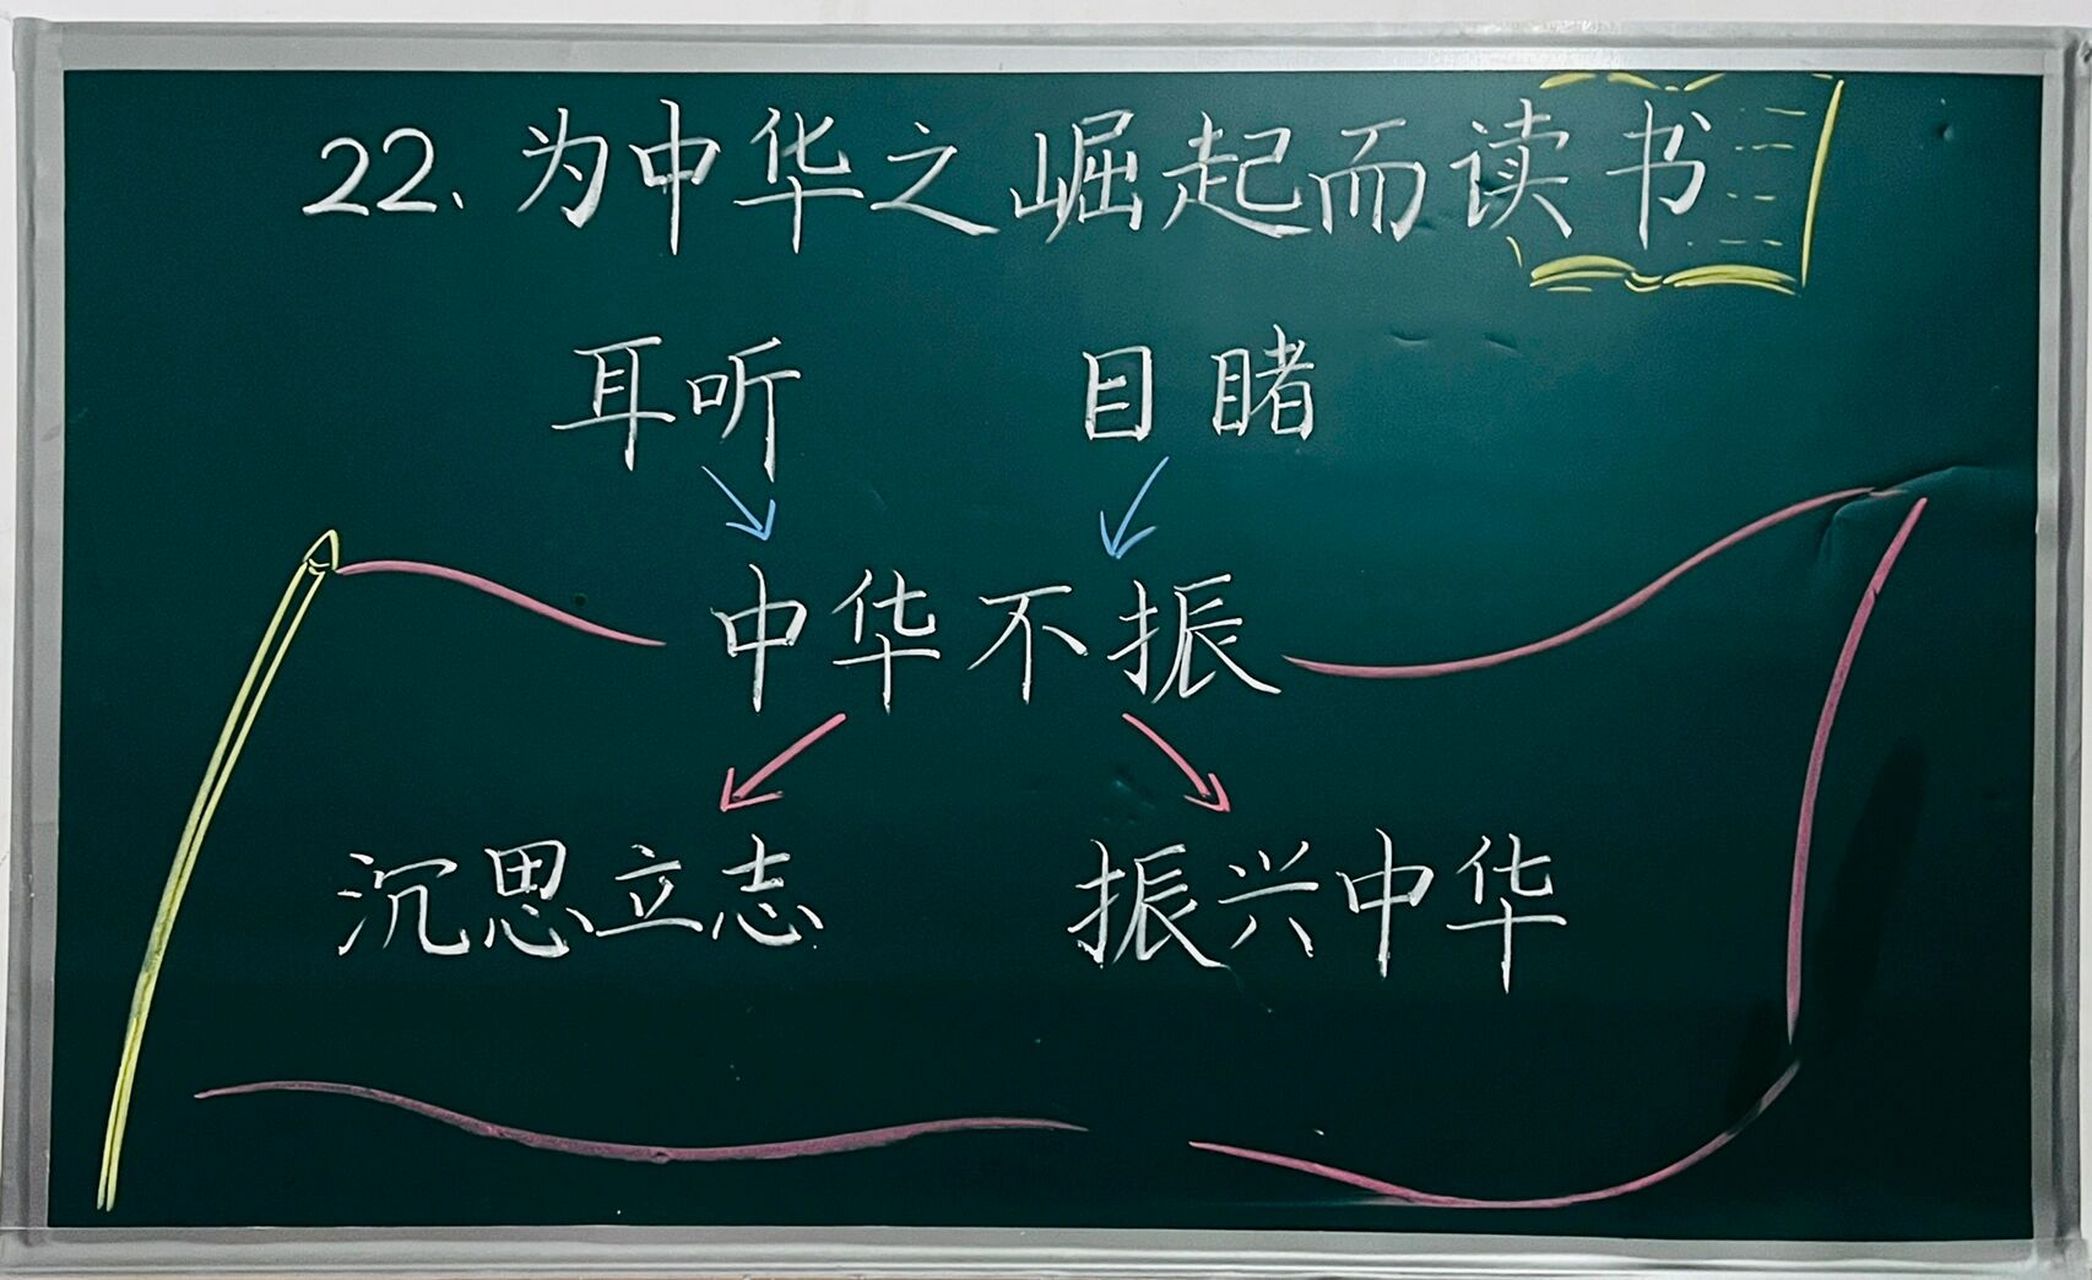 22、为中华之崛起而读书
耳听 目睹
中华不振
沉思立志 振兴中华